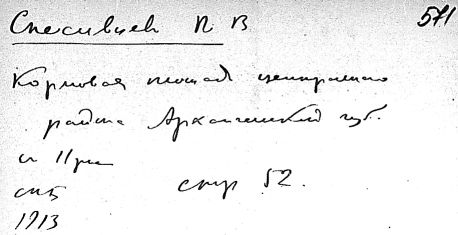 Спесивцев П В 571
Кормовая площадь центрального
района Архангельской губ.
с 11 рис
СПБ стр 52.
1913